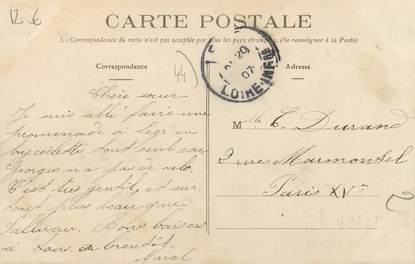 12 €
CARTE POSTALE
La Correspondance du recto n'est pas acceptée par tous les pays étrangers (Se renseigner à la Poste)
Correspondance
Adresse
44
20
07
LOIRE-INFRE
Chère sœur
Je suis allé faire une
promenade à Legé en
bycicette tout seul car
Georges n'a pas de vélo.
C'est très gentil, et sur
tout plus beau que
Bons baisers
à tous. à bientôt
M lle C. Durand
2 rue Marmontel
Paris XVe